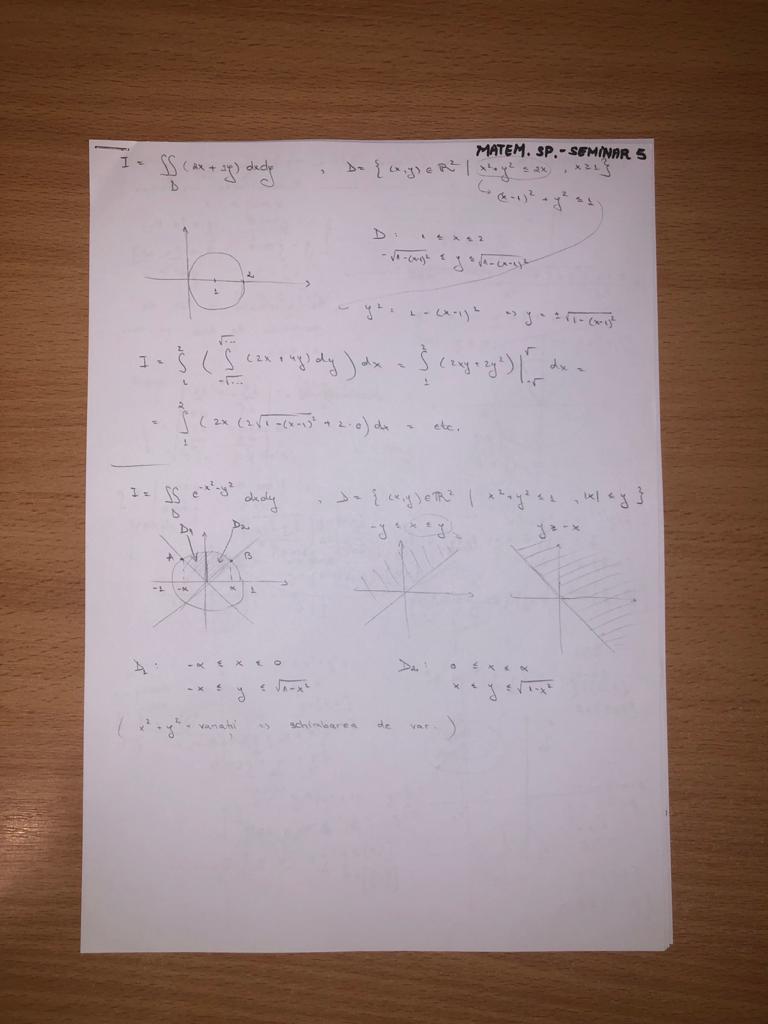 MATEM. SP. - SEMINAR 5
I = ∬_D (2x + 3y) dxdy , D = { (x,y) ∈ ℝ² | x²+y² ≤ 2x , x ≥ 1 }
↳ (x-1)² + y² ≤ 1
D : 1 ≤ x ≤ 2
-√1-(x-1)² ≤ y ≤ √1-(x-1)²
1 2
y² = 1 - (x-1)² ⇒ y = ±√1-(x-1)²
I = ∫₁² ( ∫_{-√...}^{√...} (2x + 4y) dy ) dx = ∫₁² (2xy + 2y²) |_{-√}^{√} dx =
= ∫₁² ( 2x (2√1-(x-1)² + 2·0) dx = etc.
I = ∬_D e^{-x²-y²} dxdy , D = { (x,y) ∈ ℝ² | x²+y² ≤ 1 , |x| ≤ y }
-y ≤ x ≤ y y ≥ -x
D₁ D₂
A B
-1 -α α 1
D₁ : -α ≤ x ≤ 0 D₂ : 0 ≤ x ≤ α
-x ≤ y ≤ √1-x² x ≤ y ≤ √1-x²
( x² + y² - variați ⇒ schimbarea de var. )